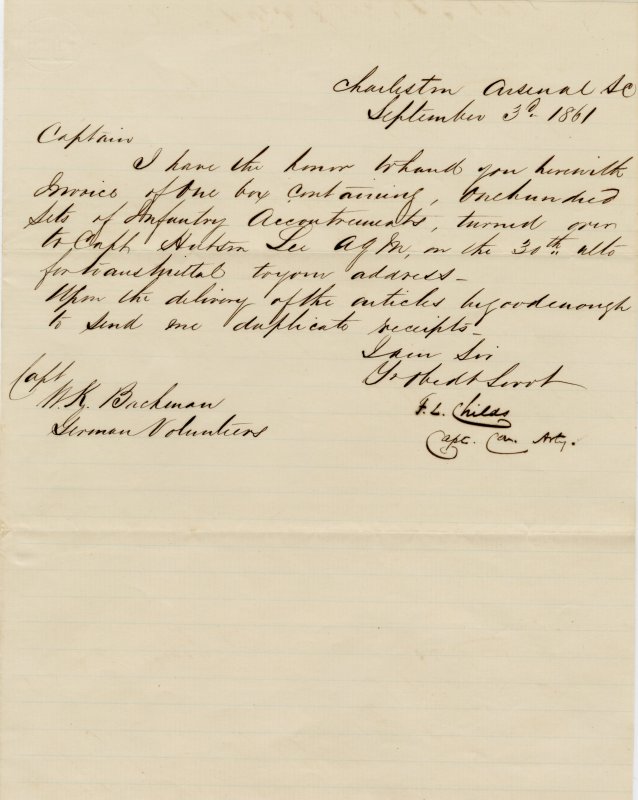 Charleston Arsenal SC
September 3d. 1861
Captain
I have the honor to hand you herewith
Invoice of One box Containing, One hundred
Sets of Infantry Accoutrements, turned over
to Capt Hutson Lee AQM, on the 30th ulto
for transmittal to your address_
Upon the delivery of the articles be good enough
to send me duplicate receipts_
I am Sir
Yr obedt Servt
F. L. Childs
Capt. C. Arty.
Capt
W. K. Bachman
German Volunteers